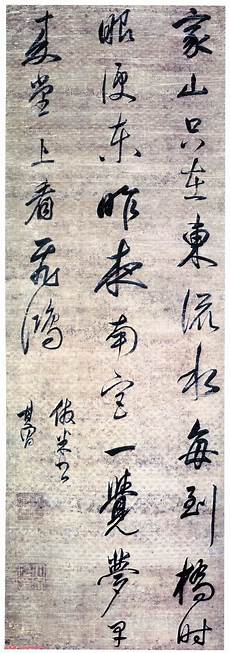 家山只在東流水每到橋時
眼便東昨夜南宮一覺夢早
來堂上看飛鴻
倣米書
其昌